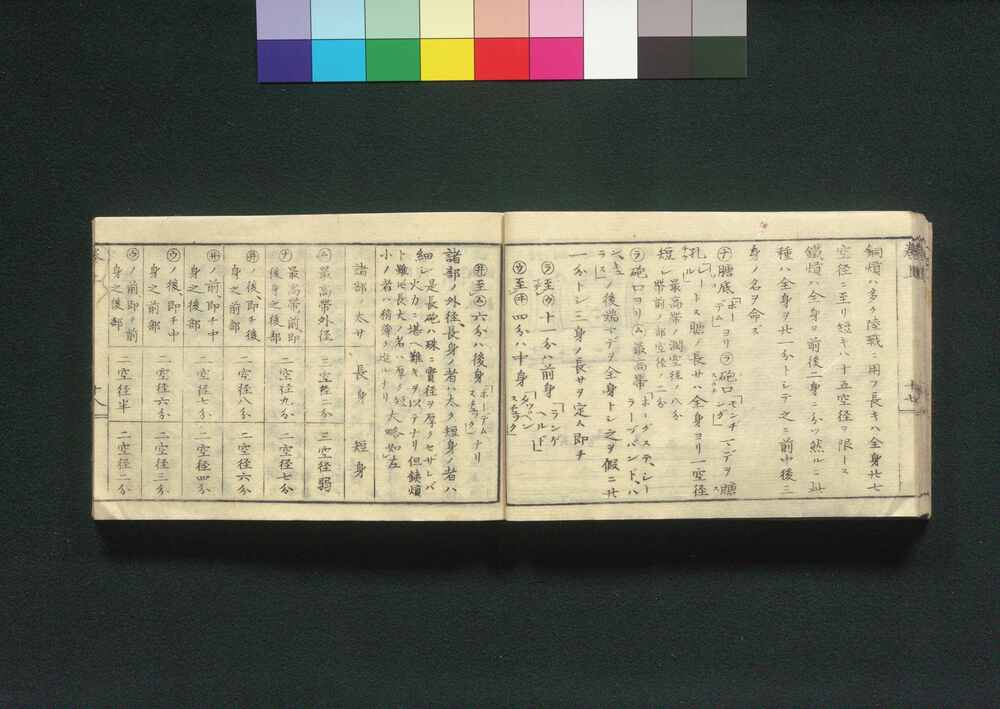 銅熕ハ多ク陸戰ニ用フ長キハ全身廿七
空径ニ至リ短キハ十五空径ヲ限トス
鐵熕ハ全身ヲ前後二身ニ分ツ然ルニ此
種ハ全身ヲ廿一分トシテ之ニ前中後三
身ノ名ヲ命ズ
㋠膅底「ボーデム」ヨリ㋶砲口「モンヂング」マデヲ膅
孔「シール」トス膅ノ長サハ全身ヨリ一空径
短シ
最高帶ノ濶空径ノ八分
帶前ノ部空径ノ二分
㋶砲口ヨリ㋰最高帶
ノ後端マデヲ全身トシ之ヲ假ニ廿
一分トシ三身ノ長サヲ定ム即チ
㋶至㋒十一分ハ前身「ランゲヘルド」
㋒至㋼四分ハ中身
㋼至㋰六分ハ後身「ボーデム」ナリ
諸部ノ外径長身ノ者ハ太ク短身ノ者ハ
細シ是長砲ハ殊ニ實径ヲ厚クセザレバ
火力ニ堪ヘ難キヲ以テナリ但鐵熕
ト雖モ長大ノ者ハ厚ク短
小ノ者ハ稍薄ク造ルナリ
大略如左
諸部ノ太サ 長身 短身
㋰最高帶外径 三空径二分 三空径弱
㋠最高帶前、即後身之後部 二空径九分 二空径七分
㋼ノ後、即チ後身之前部 二空径八分 二空径六分
㋼ノ前、即チ中身之後部 二空径七分 二空径四分
㋒ノ後、即チ中身之前部 二空径六分 二空径三分
㋒ノ前、即チ前身之後部 二空径半 二空径二分